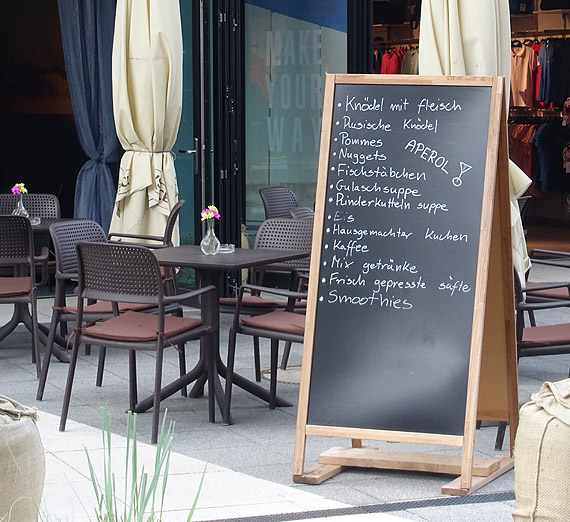 MAKE
YOUR
WAY
• Knödel mit fleisch
• Rusische Knödel
• Pommes
APEROL
• Nuggets
• Fischstäbchen
• Gulaschsuppe
• Rinderkutteln suppe
• Eis
• Hausgemachter Kuchen
• Kaffee
• Mix getränke
• Frisch gepresste säfte
• Smoothies